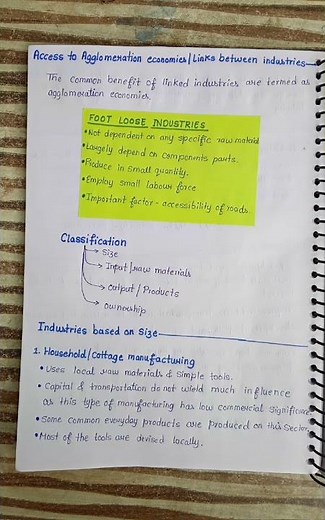 Access to Agglomeration economies/Links between industries
The common benefit of linked industries are termed as
agglomeration economies
FOOT LOOSE INDUSTRIES
• Not dependent on any specific raw material
• Largely depend on components parts.
• Produce in small quantity.
• Employ small labour force
• Important factor - accessibility of roads
Classification
→ Size
→ Input/raw materials
→ Output/Products
→ Ownership
Industries based on Size
1. Household/Cottage manufacturing
• Uses local raw materials & simple tools.
• Capital & transportation do not wield much influence
as this type of manufacturing has low commercial significance
• Some common everyday products are produced on this Sector
• Most of the tools are devised locally.